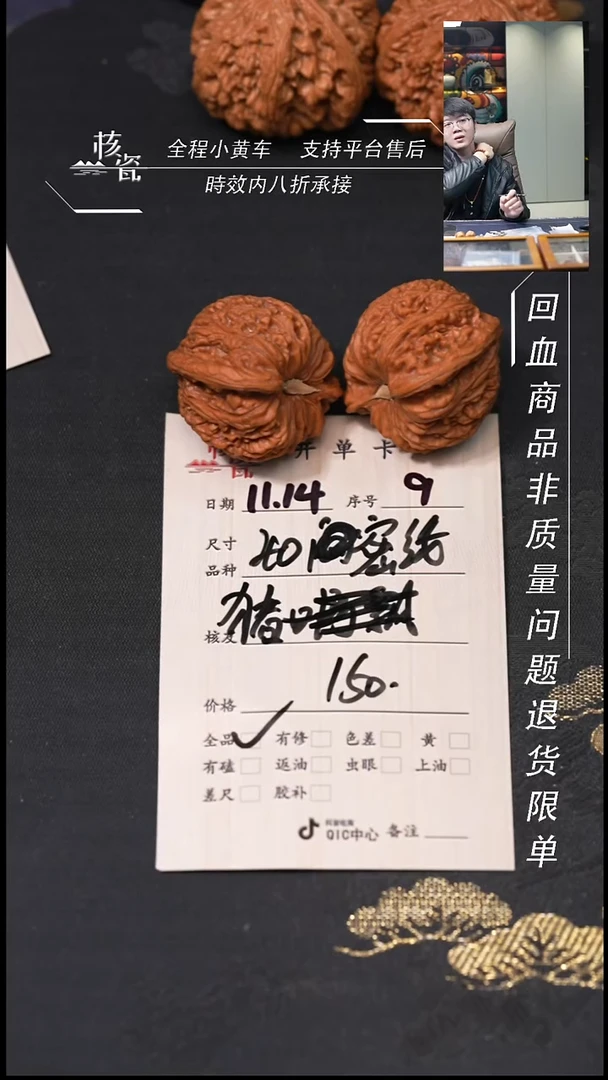 核瓷
全程小黄车 支持平台售后
時效内八折承接
回血商品非质量问题退货限单
开单卡
日期 11.14 序号 9
尺寸
品种
核友
价格 150.
全品 ✓ 有修 色差 黄
有磕 返油 虫眼 上油
差尺 胶补
QIC中心 备注